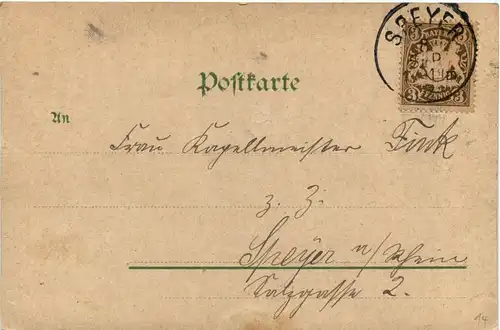 SPEYER
BAYERN
3 3
Postkarte
An
Frau Kapellmeister Fink
z. Z.
Speyer a/Rhein
Salzgasse 2.
14